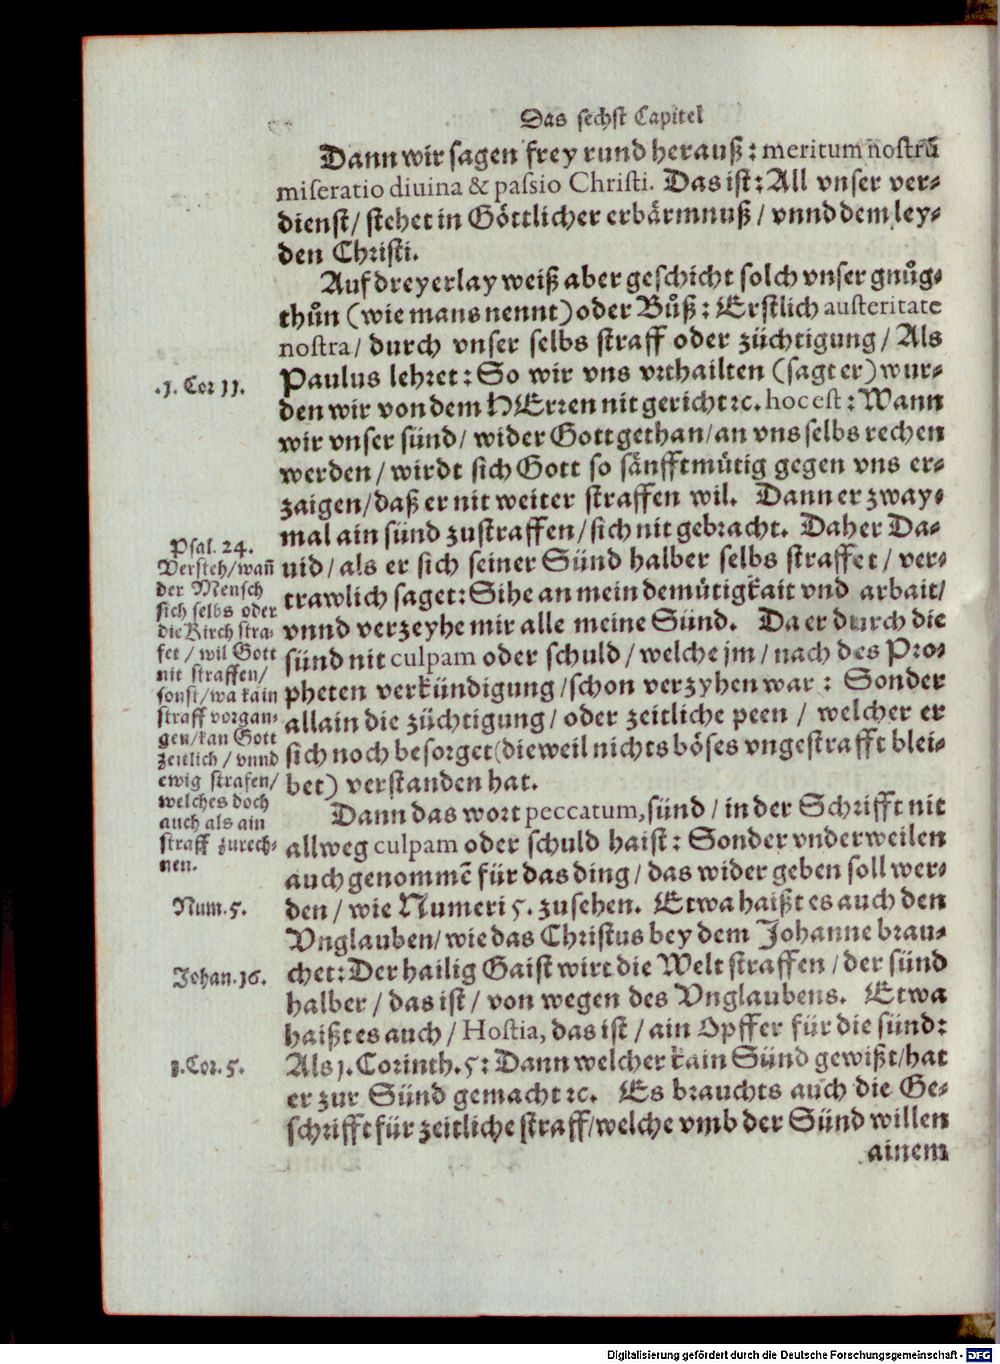 Das sechst Capitel
Dann wir sagen frey rund herauß: meritum nostrũ
miseratio diuina & passio Christi. Das ist: All vnser ver-
dienst/ stehet in Göttlicher erbärmnuß/ vnnd dem ley-
den Christi.
Auf dreyerlay weiß aber geschicht solch vnser gnůg-
thůn (wie mans nennt) oder Bůß: Erstlich austeritate
nostra/ durch vnser selbs straff oder züchtigung/ Als
.1. Cor 11.
Paulus lehret: So wir vns vrthailten (sagt er) wur-
den wir von dem HErren nit gericht ꝛc. hoc est: Wann
wir vnser sünd/ wider Gott gethan/ an vns selbs rechen
werden/ wirdt sich Gott so sänfftmütig gegen vns er-
zaigen/ daß er nit weiter straffen wil. Dann er zway-
mal ain sünd zustraffen/ sich nit gebracht. Daher Da-
uid/ als er sich seiner Sünd halber selbs straffet/ ver-
trawlich saget: Sihe an mein demütigkait vnd arbait/
vnnd verzeyhe mir alle meine Sünd. Da er durch die
sünd nit culpam oder schuld/ welche jm/ nach des Pro-
pheten verkündigung/ schon verzyhen war: Sonder
allain die züchtigung/ oder zeitliche peen/ welcher er
sich noch besorget (dieweil nichts böses vngestrafft blei-
bet) verstanden hat.
Psal. 24.
Versteh/ wañ
der Mensch
sich selbs oder
die Kirch stra-
fet/ wil Gott
nit straffen/
sonst/ wa kain
straff vorgan-
gen/ kan Gott
zeitlich/ vnnd
ewig strafen/
welches doch
auch als ain
straff zurech-
nen.
Dann das wort peccatum, sünd/ in der Schrifft nit
allweg culpam oder schuld haist: Sonder vnderweilen
auch genommẽ für das ding/ das wider geben soll wer-
Num. 5.
den/ wie Numeri 5. zusehen. Etwa haißt es auch den
Vnglauben/ wie das Christus bey dem Johanne brau-
Johan. 16.
chet: Der hailig Gaist wirt die Welt straffen/ der sünd
halber/ das ist/ von wegen des Vnglaubens. Etwa
haißt es auch/ Hostia, das ist/ ain Opffer für die sünd:
1. Cor. 5.
Als 1. Corinth. 5: Dann welcher kain Sünd gewißt/ hat
er zur Sünd gemacht ꝛc. Es brauchts auch die Ge-
schrifft für zeitliche straff/ welche vmb der Sünd willen
ainem
Digitalisierung gefördert durch die Deutsche Forschungsgemeinschaft - DFG